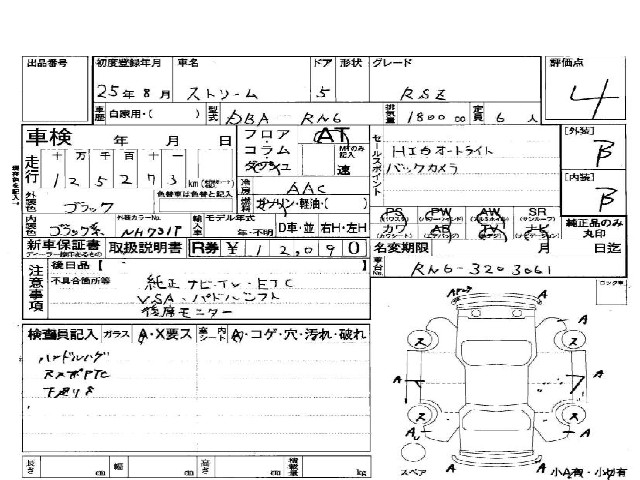 出品番号 初度登録年月 車名 ドア 形状 グレード 評価点
25年8月 ストリーム 5 RSZ 4
車歴 自家用・( ) 型式 DBA-RN6 排気量 1800 cc 定員 6 人
車検 年 月 日 フロア・コラム・ AT MTのみ記入 速
セールスポイント HIDオートライト
バックカメラ
[外装] B
[内装] B
走行 十 万 千 百 十 一
1 2 5 2 7 3 km
冷房 AAC
外装色 ブラック 色替車は色替と記入 燃料 ガソリン・軽油・( )
PS PW AW SR
カワ AB TV ナビ
純正品のみ丸印
内装色 ブラック系 外装カラーNo. NH731P 輸入車 モデル年式 年・不明 D車・並 右H・左H
新車保証書 取扱説明書 R券 ¥ 12,090 名変期限 月 日迄
車台No. RN6-3203061
注意事項 後日品【
不具合箇所等 純正ナビ・TV・ETC
VSA・パドルシフト
後席モニター
ロック車
検査員記入 ガラス A・X要ス 室内シート A・コゲ・穴・汚れ・破れ
下廻りS
長さ cm 幅 cm 高さ cm 積載量 kg
スペア 小A有・小凹有